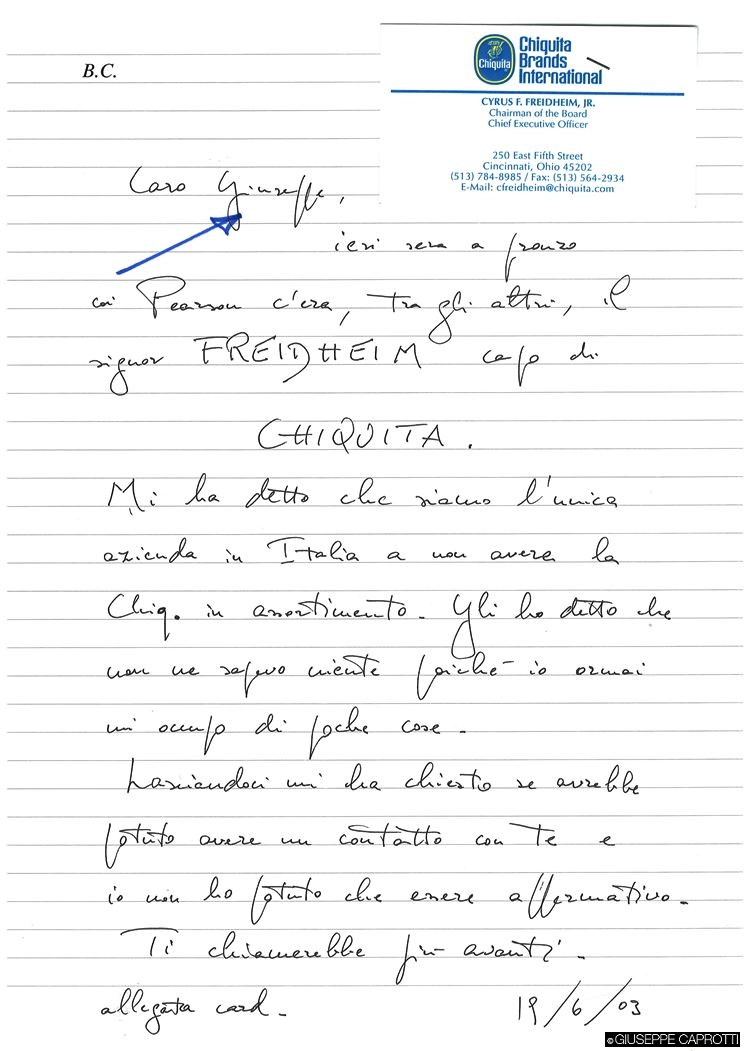 B.C.
Chiquita
Chiquita
Brands
International
CYRUS F. FREIDHEIM, JR.
Chairman of the Board
Chief Executive Officer
250 East Fifth Street
Cincinnati, Ohio 45202
(513) 784-8985 / Fax: (513) 564-2934
E-Mail: cfreidheim@chiquita.com
Caro Giuseppe,
ieri sera a pranzo
coi Pearson c'era, tra gli altri, il
signor FREIDHEIM capo di
CHIQUITA.
Mi ha detto che siamo l'unica
azienda in Italia a non avere la
Chiq. in assortimento. Gli ho detto che
non ne sapevo niente poiché io ormai
mi occupo di poche cose.
Lasciandoci mi ha chiesto se avrebbe
potuto avere un contatto con Te e
io non ho potuto che essere affermativo.
Ti chiamerebbe più avanti.
allegata card.
19/6/03
©GIUSEPPE CAPROTTI